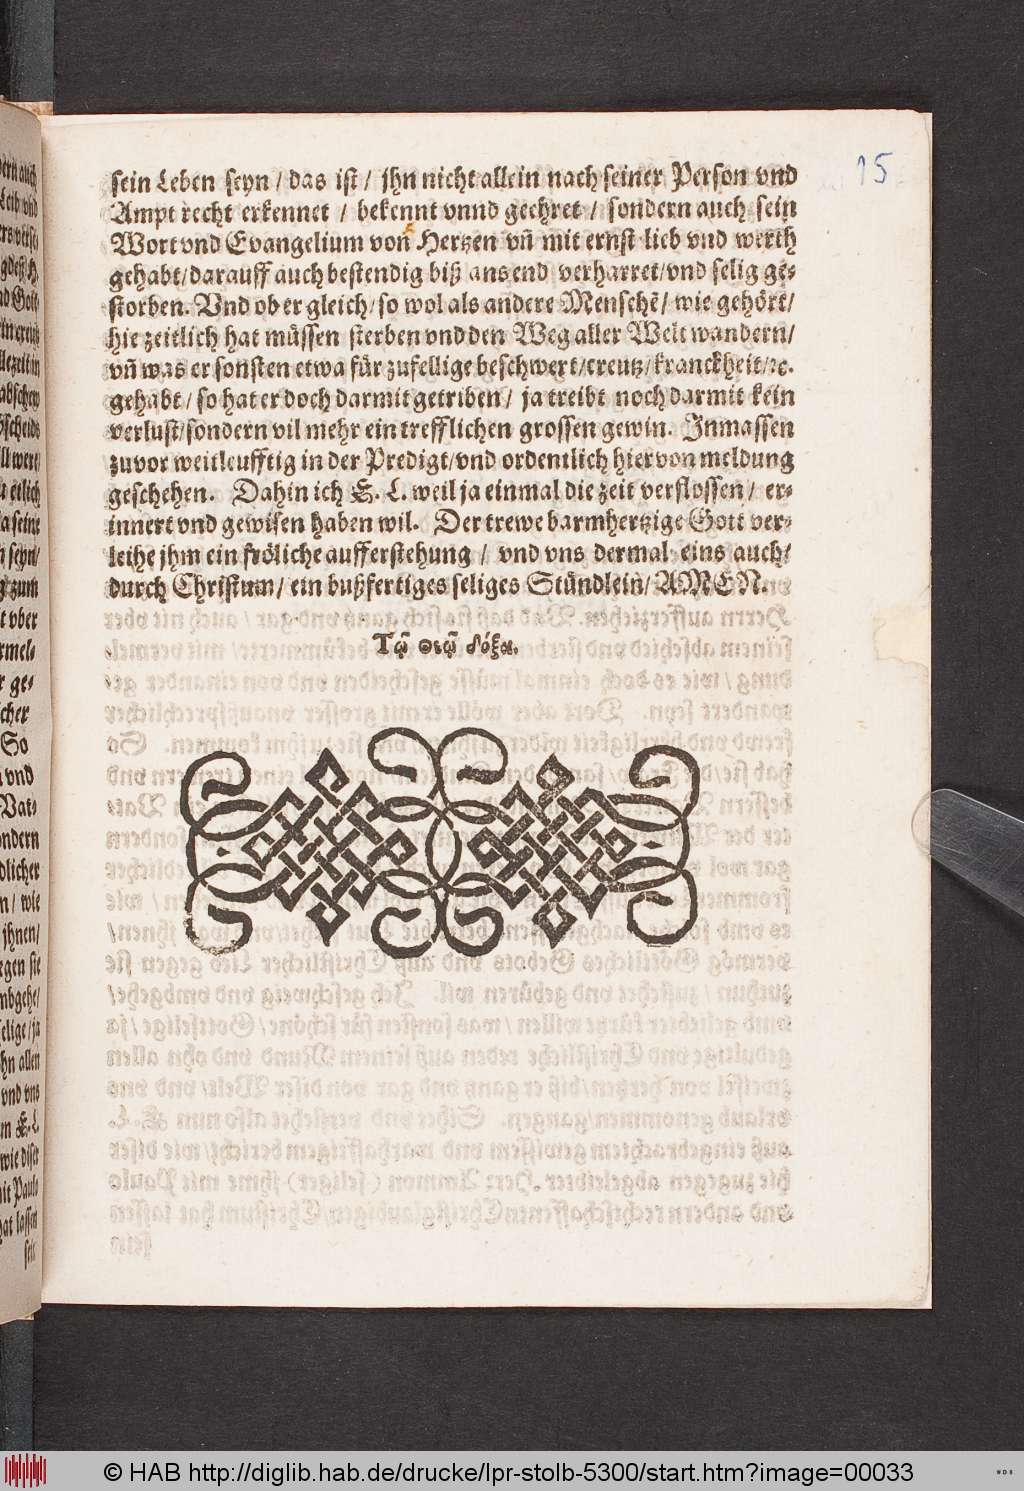 15
sein Leben seyn / das ist / jhn nicht allein nach seiner Person vnd
Ampt recht erkennet / bekennt vnnd geehret / sondern auch sein
Wort vnd Evangelium von Hertzen vn̄ mit ernst lieb vnd werth
gehabt / darauff auch bestendig biß ans end verharret / vnd selig ge-
storben. Vnd ob er gleich / so wol als andere Menschē / wie gehört /
hie zeitlich hat müssen sterben vnd den Weg aller Welt wandern /
vn̄ was er sonsten etwa für zufellige beschwert / creutz / kranckheit / ꝛc.
gehabt / so hat er doch darmit getriben / ja treibt noch darmit kein
verlust / sondern vil mehr ein trefflichen grossen gewin. Inmassen
zuvor weitleufftig in der Predigt / vnd ordentlich hiervon meldung
geschehen. Dahin ich E. L. weil ja einmal die zeit verflossen / er-
innert vnd gewisen haben wil. Der trewe barmhertzige Gott ver-
leihe jhm ein fröliche aufferstehung / vnd vns dermal eins auch /
durch Christum / ein bußfertiges seliges Stündlein / AMEN.
Τῷ Θεῷ δόξα.
© HAB http://diglib.hab.de/drucke/lpr-stolb-5300/start.htm?image=00033